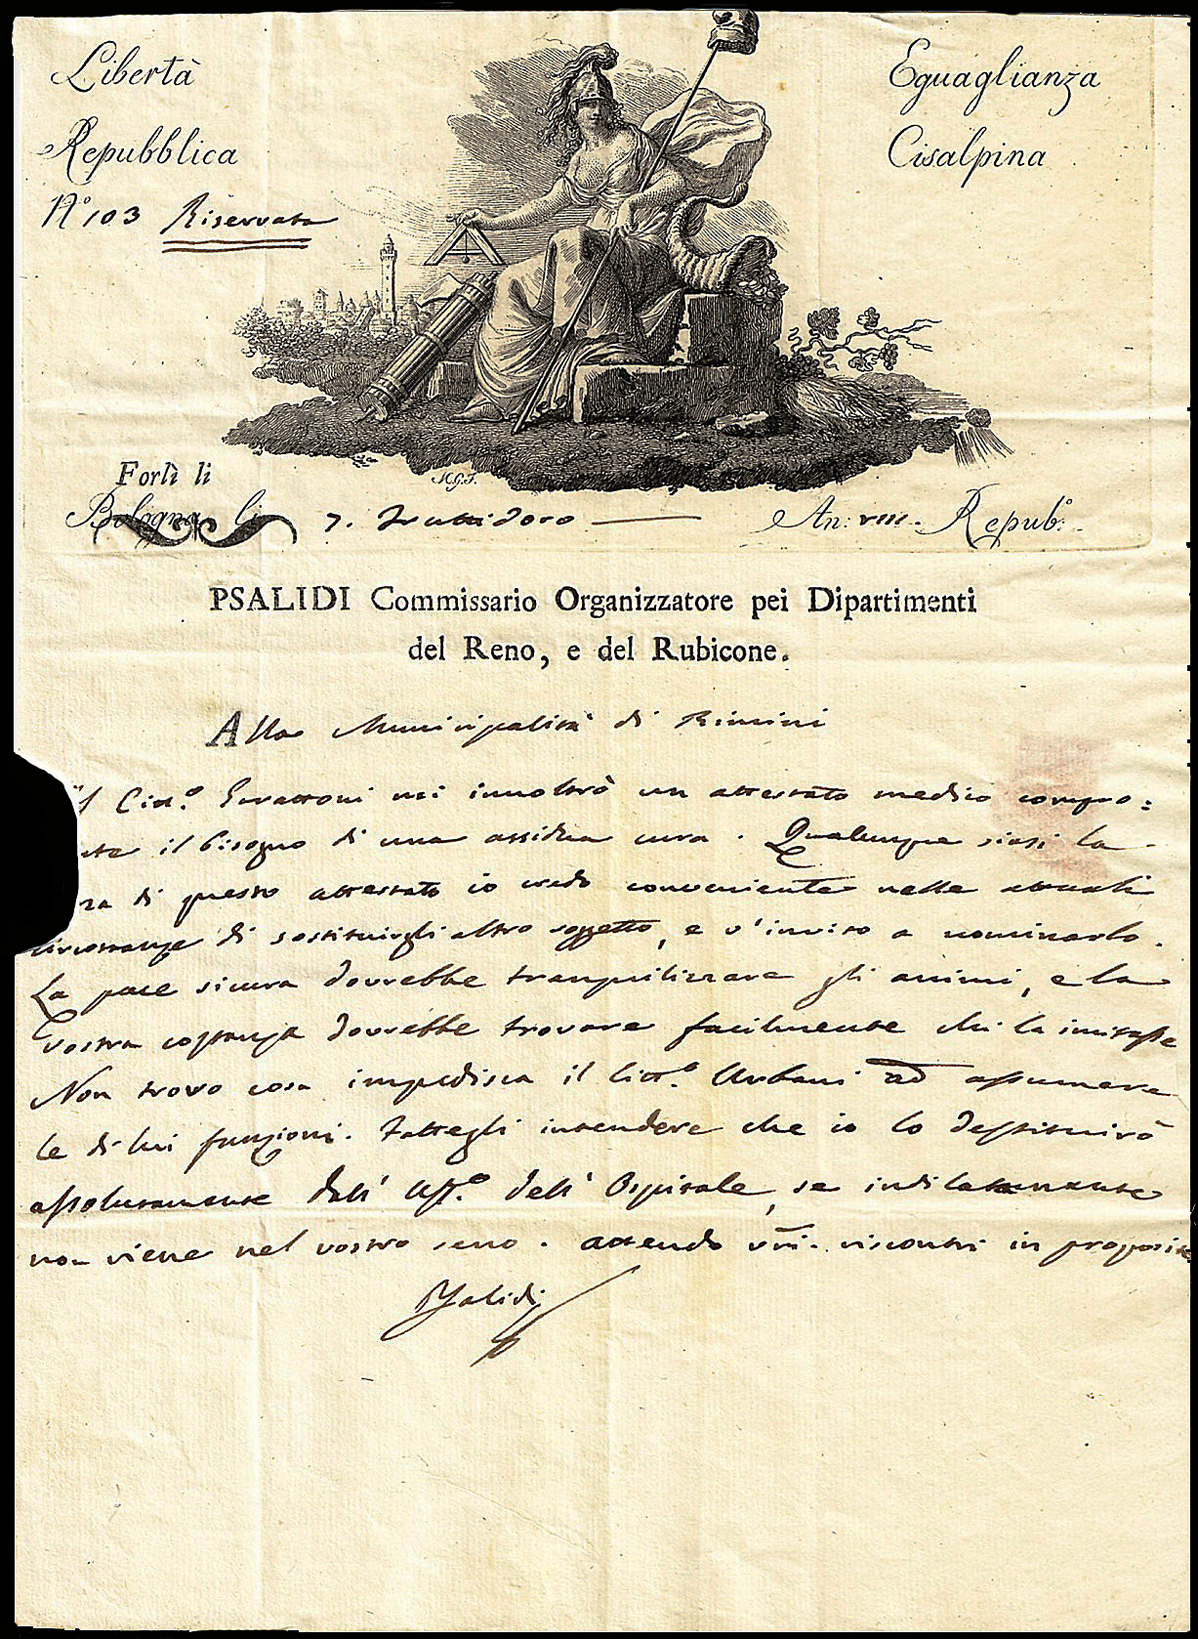 Libertà Eguaglianza
Repubblica Cisalpina
N.° 103 Riservata
H.G.F.
Forlì li
Bologna li 7. Fruttidoro An: VIII. Repub.°
PSALIDI Commissario Organizzatore pei Dipartimenti
del Reno, e del Rubicone.
Alla Municipalità di Rimini
Il Citt.° mi innoltrò un attestato medico compro=
il bisogno di una assidua cura. Qualunque siasi la
di questo attestato io credo conveniente nelle attuali
circostanze di sostituirgli altro soggetto, e v'invito a nominarlo.
La pace sicura dovrebbe tranquilizzare gli animi, e la
vostra costanza dovrebbe trovare facilmente chi la imitasse
Non trovo cosa impedisca il Citt.° Urbani ad assumere
le di lui funzioni. Fattegli intendere che io lo destituirò
assolutamente dall' Uff.° dell' Ospitale, se indilatamente
non viene nel vostro seno. attendo vri. riscontri in proposito
Psalidi